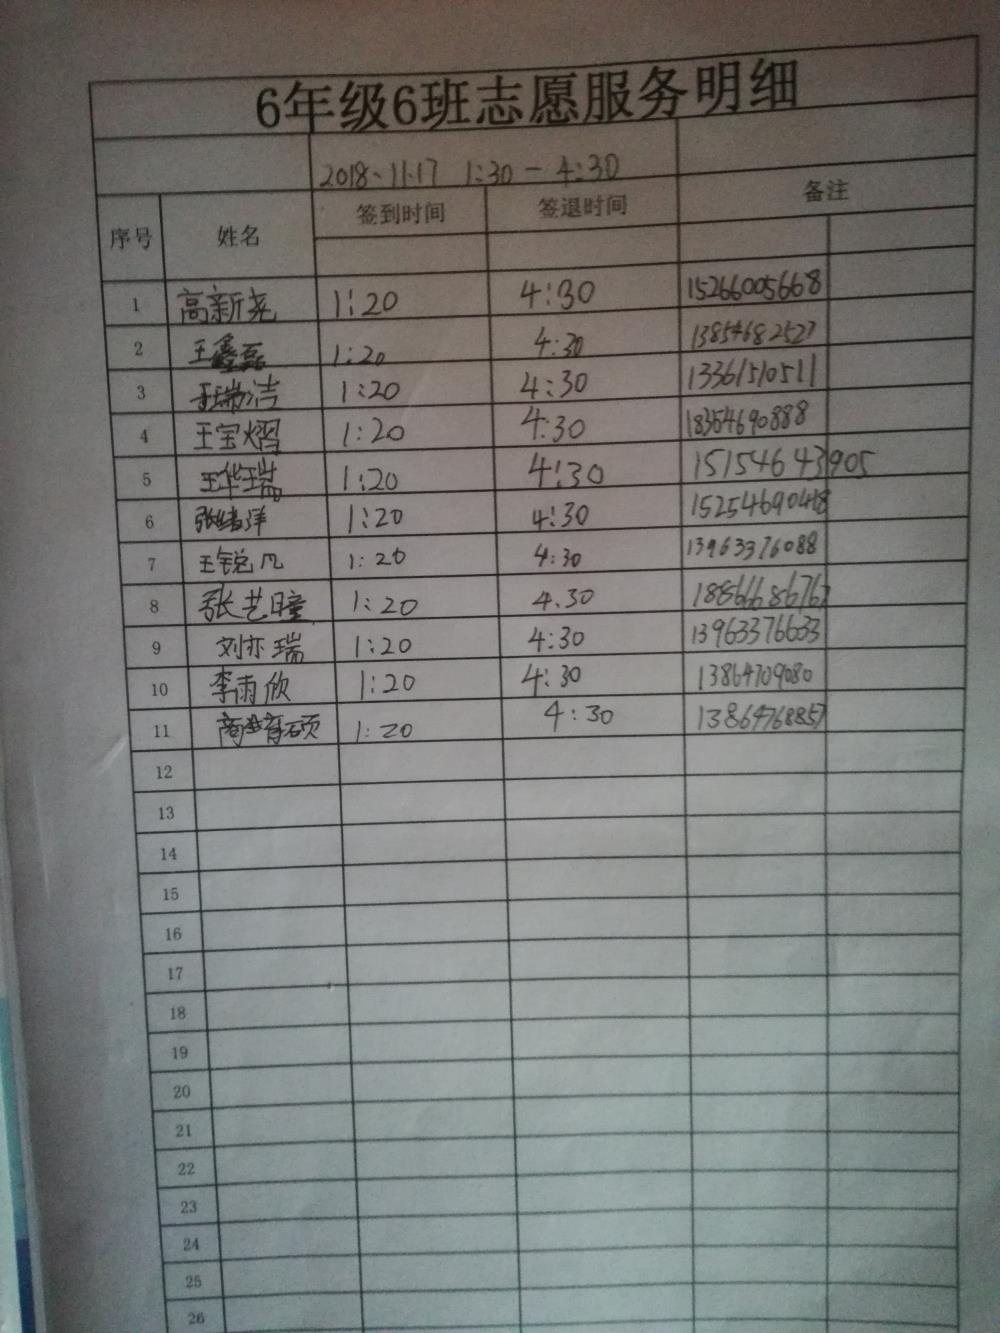 6年级6班志愿服务明细
2018、11.17 1:30 - 4:30
序号 姓名 签到时间 签退时间 备注
1 高新尧 1:20 4:30 15266005668
2 王鑫磊 1:20 4:30 13854682527
3 王瑞洁 1:20 4:30 13361510511
4 王宝熠 1:20 4:30 18354690888
5 王华瑞 1:20 4:30 15154643905
6 张绪洋 1:20 4:30
7 王锐凡 1:20 4:30 13963376088
8 张艺瞳 1:20 4.30 18866686767
9 刘亦瑞 1:20 4:30 13963376633
10 李雨欣 1:20 4:30 13864709080
11 1:20 4:30 13864768857
12
13
14
15
16
17
18
19
20
21
22
23
24
25
26